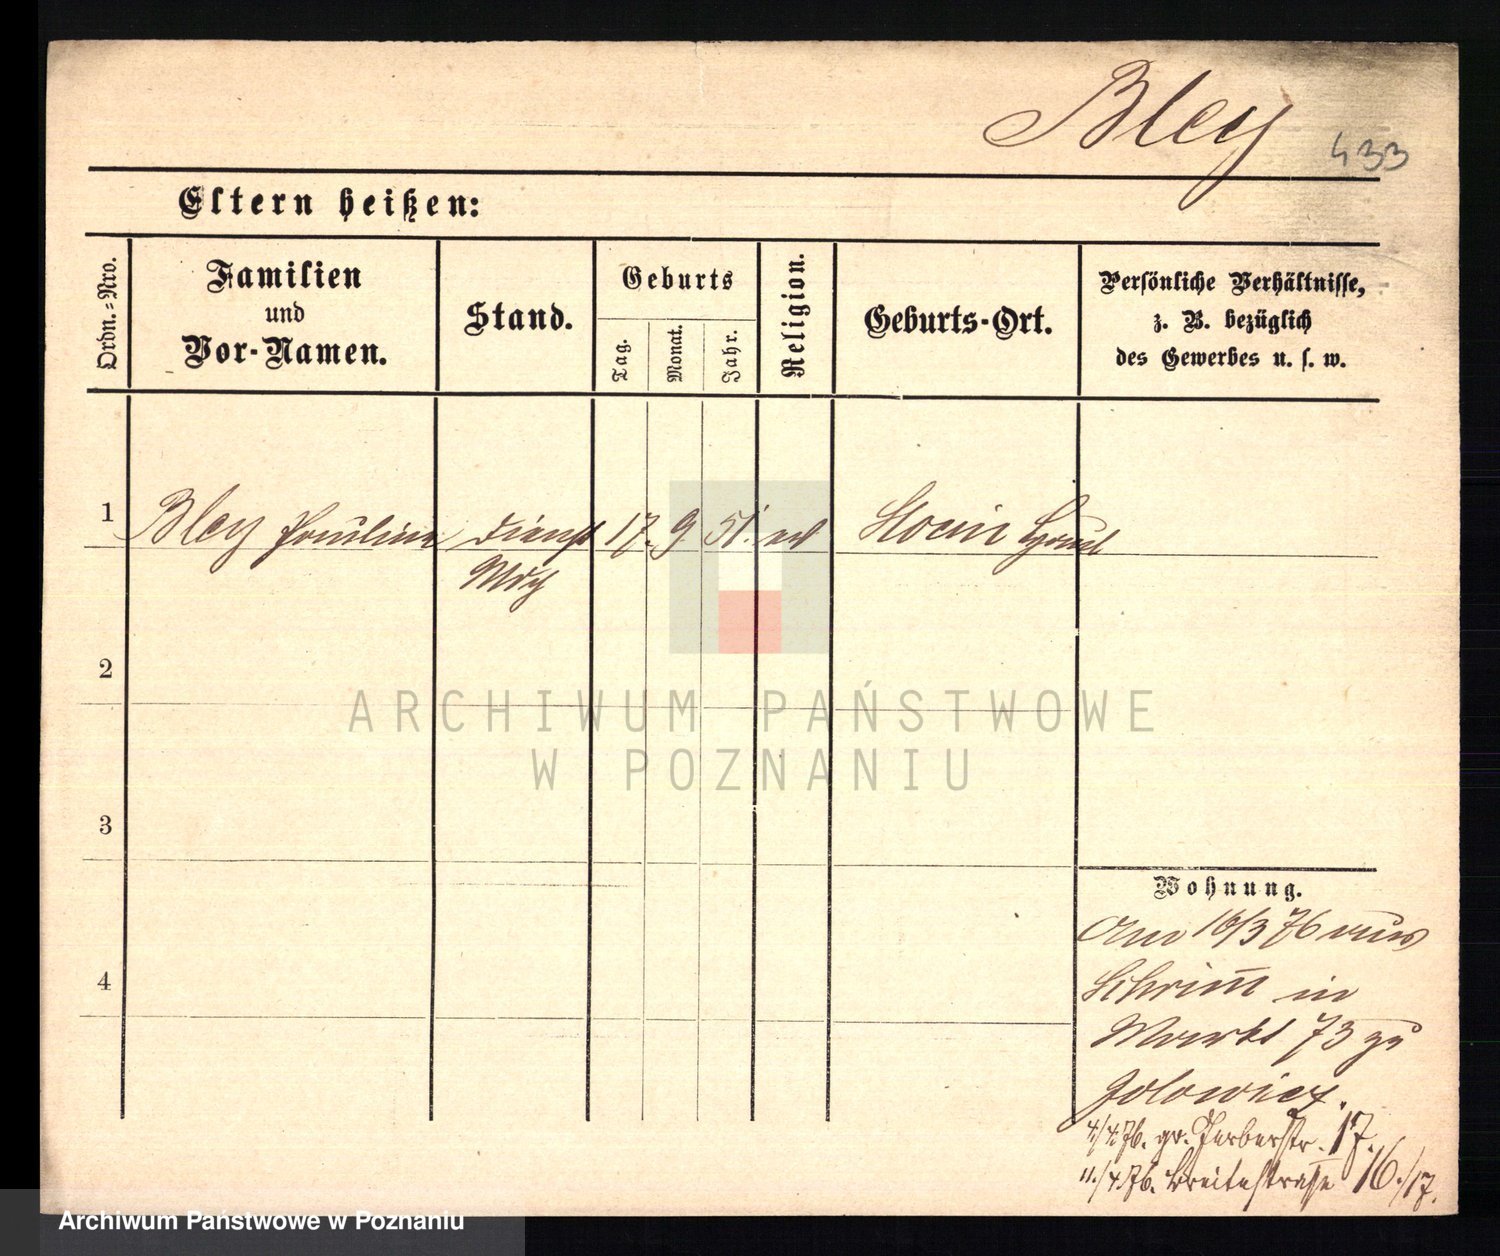 Bley
433
Eltern heißen:
Ordn.-Nro.
Familien
und
Vor-Namen.
Stand.
Geburts
Tag.
Monat.
Jahr.
Religion.
Geburts-Ort.
Persönliche Verhältnisse,
z. B. bezüglich
des Gewerbes u. s. w.
1 Bley Pauline Dienst 17. 9 51.
Mdch
2
3
4
Wohnung.
Am 16/3 76 aus
Schrimm in
Markt 73 zu
Jolowicz.
4/4 76. gr. Gerberstr. 17.
11./4 76. Breitestraße 16./17.
ARCHIWUM PAŃSTWOWE
W POZNANIU
Archiwum Państwowe w Poznaniu